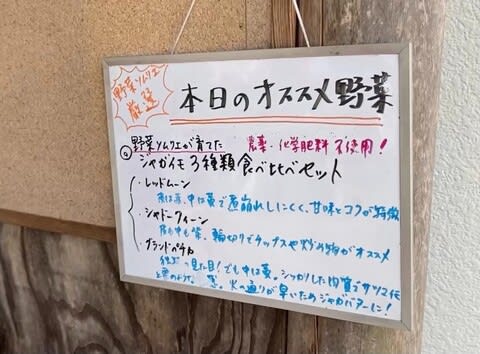 野菜ソムリエ
厳選
本日のオススメ野菜
野菜ソムリエが育てた 農薬・化学肥料不使用!
ジャガイモ3種類食べ比べセット
・レッドムーン
皮は赤、中は黄で煮崩れしにくく、甘味とコクが特徴
・シャドークィーン
皮も中も紫、輪切りでチップスや炒め物がオススメ
・グランドペチカ
見た目!でも中は黄。シッカリした肉質でサツマイモ
と栗のような 火の通りが早いためジャガバターに!